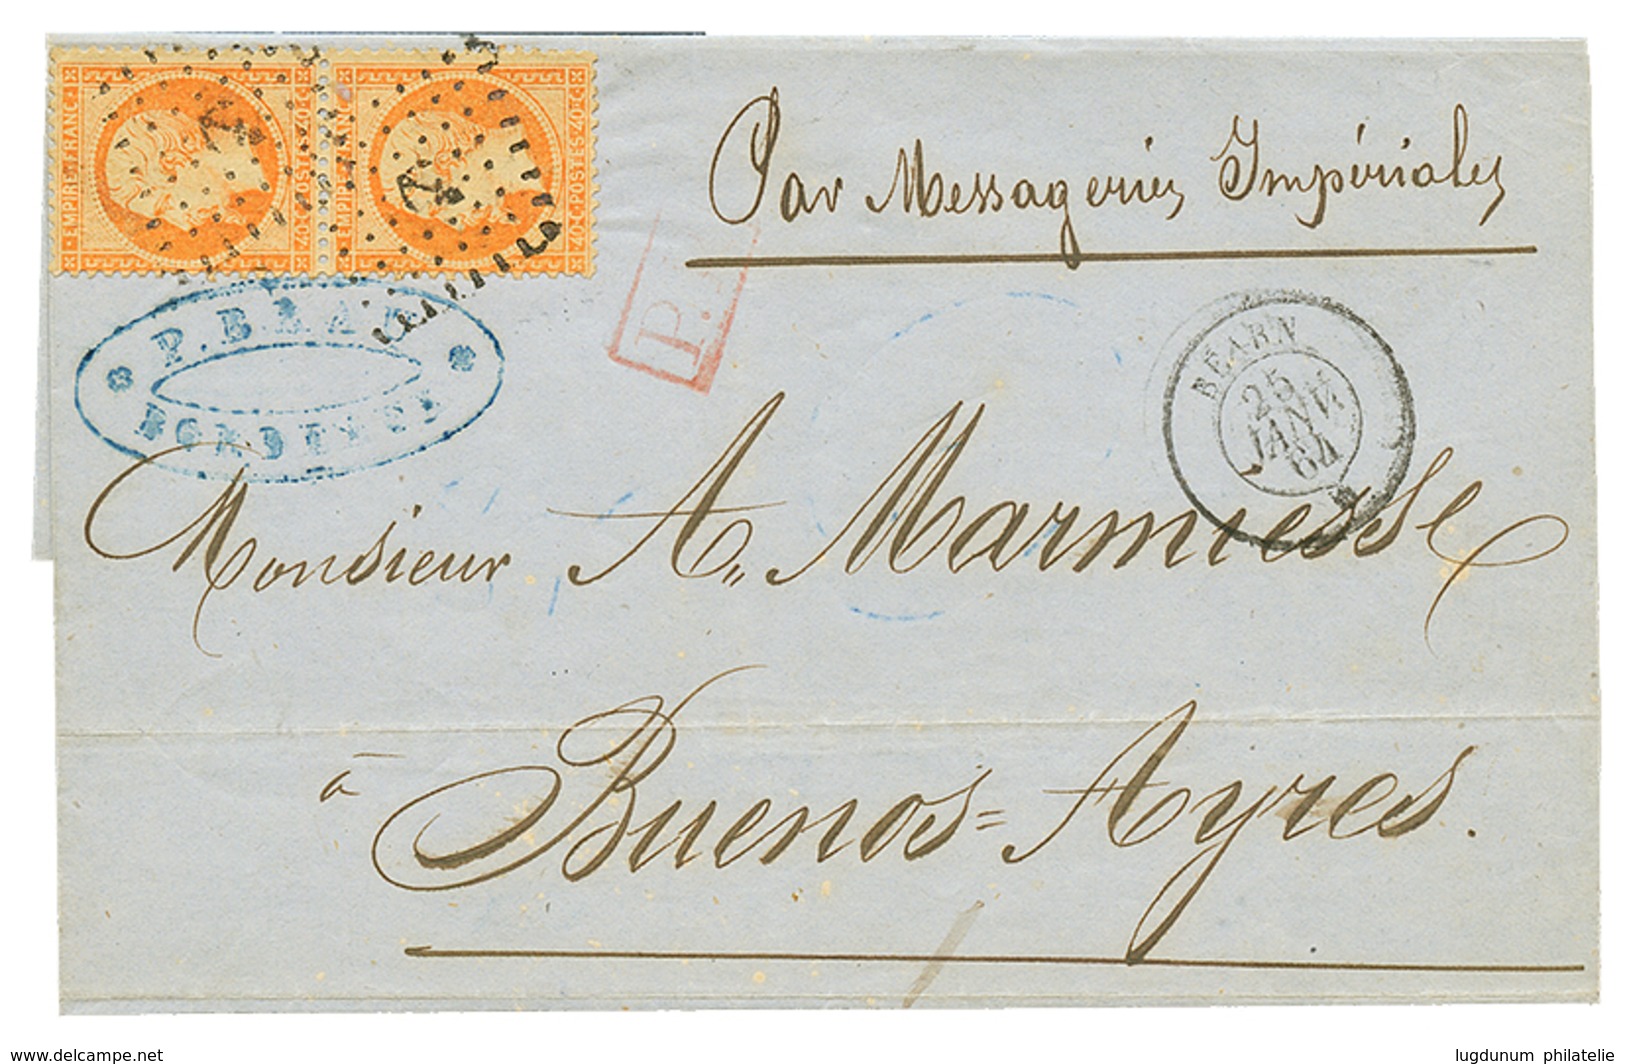 EMPIRE FRANC
40 C POSTES 40 C
EMPIRE FRANC
40 C POSTES 40 C
Par Messageries Impériales
P.
BÉARN
25
JANV
64
BORDEAUX
Monsieur A. Marmiesse
à Buenos=Ayres.
www.delcampe.net
lugdunum philatelie